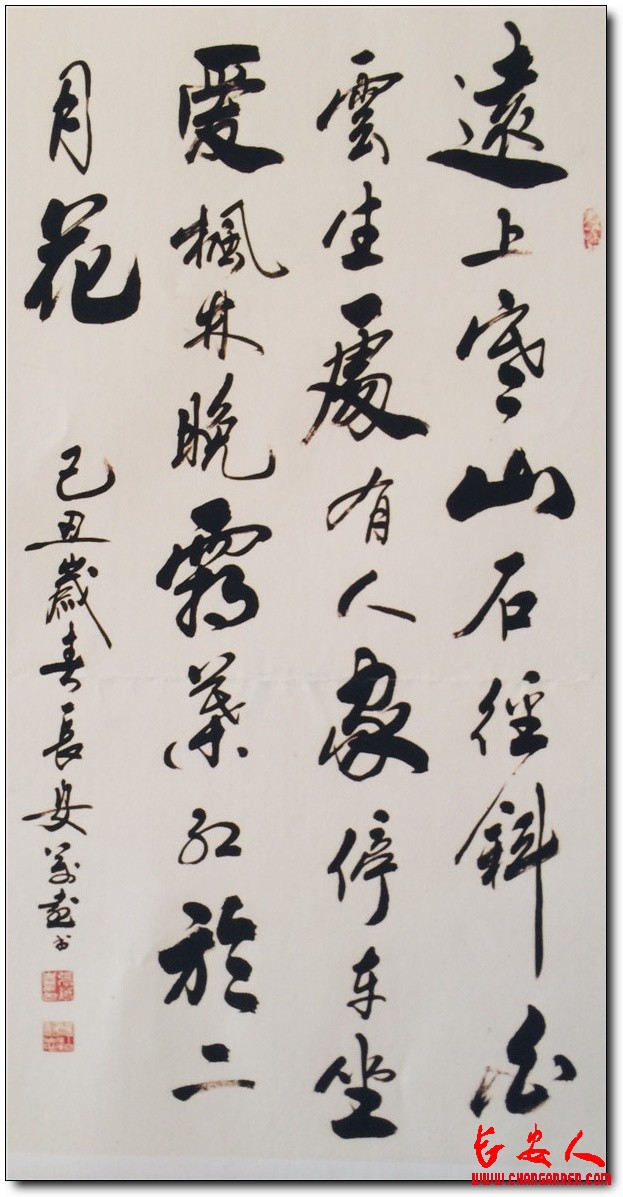 遠上寒山石徑斜白
雲生處有人家停車坐
愛楓林晚霜葉紅於二
月花
己丑歲春長安
长安人
WWW.CHANGANREN.COM